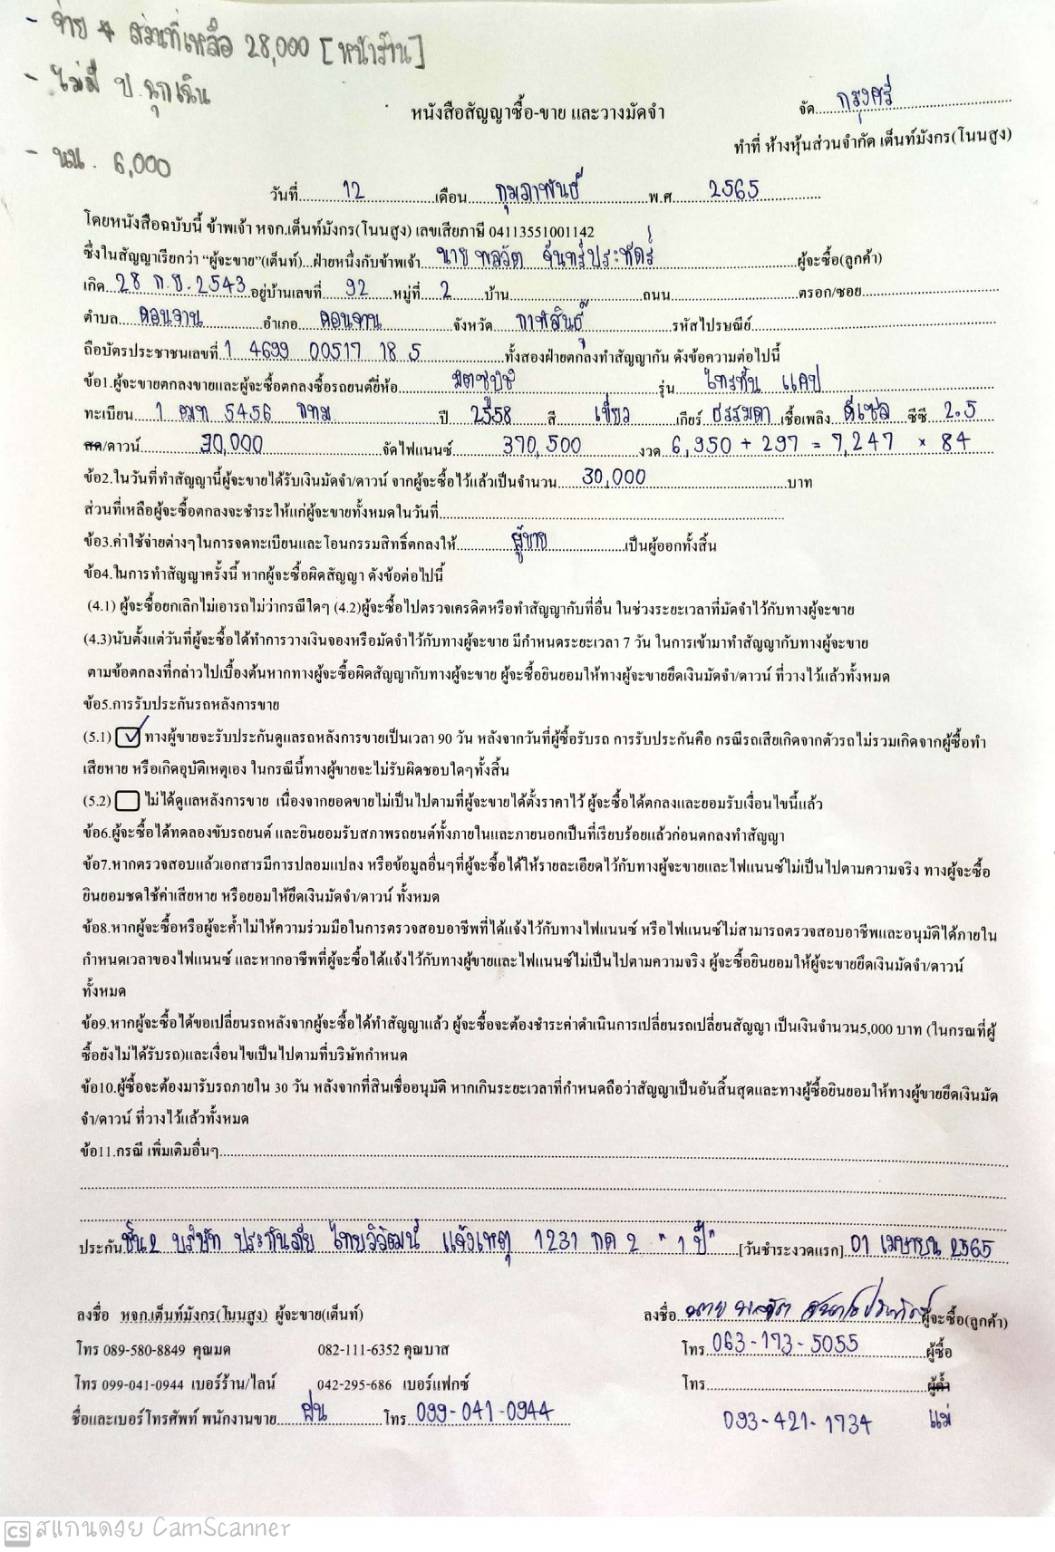 - จ่าย ส่วนที่เหลือ 28,000 [หน้าร้าน]
- ไม่มี ป.ฉุกเฉิน
- นน. 6,000
จัด กรุงศรี
หนังสือสัญญาซื้อ-ขาย และวางมัดจำ
ทำที่ ห้างหุ้นส่วนจำกัด เต็นท์มังกร(โนนสูง)
วันที่ 12 เดือน กุมภาพันธ์ พ.ศ 2565
โดยหนังสือฉบับนี้ ข้าพเจ้า หจก.เต็นท์มังกร(โนนสูง) เลขเสียภาษี 04113551001142
ซึ่งในสัญญาเรียกว่า “ผู้จะขาย”(เต็นท์)...ฝ่ายหนึ่งกับข้าพเจ้า นาย พลวัต จันทร์ประทัดร์ ผู้จะซื้อ(ลูกค้า)
เกิด 28 ก.ย. 2543 อยู่บ้านเลขที่ 92 หมู่ที่ 2 บ้าน ถนน ตรอก/ซอย
ตำบล ดอนจาน อำเภอ ดอนจาน จังหวัด กาฬสินธุ์ รหัสไปรษณีย์
ถือบัตรประชาชนเลขที่ 1 4699 00517 18 5 ทั้งสองฝ่ายตกลงทำสัญญากัน ดังข้อความต่อไปนี้
ข้อ1.ผู้จะขายตกลงขายและผู้จะซื้อตกลงซื้อรถยนต์ยี่ห้อ มิตซูบิชิ รุ่น ไทรทัน แคป
ทะเบียน 1 ฒท 5456 กทม ปี 2558 สี เขียว เกียร์ ธรรมดา เชื้อเพลิง ดีเซล ซีซี 2.5
สด/ดาวน์ 30,000 จัดไฟแนนซ์ 370,500 งวด 6,950 + 297 = 7,247 × 84
ข้อ2.ในวันที่ทำสัญญานี้ผู้จะขายได้รับเงินมัดจำ/ดาวน์ จากผู้จะซื้อไว้แล้วเป็นจำนวน 30,000 บาท
ส่วนที่เหลือผู้จะซื้อตกลงจะชำระให้แก่ผู้จะขายทั้งหมดในวันที่
ข้อ3.ค่าใช้จ่ายต่างๆในการจดทะเบียนและโอนกรรมสิทธิ์ตกลงให้ ผู้ขาย เป็นผู้ออกทั้งสิ้น
ข้อ4.ในการทำสัญญาครั้งนี้ หากผู้จะซื้อผิดสัญญา ดังข้อต่อไปนี้
(4.1) ผู้จะซื้อยกเลิกไม่เอารถไม่ว่ากรณีใดๆ (4.2)ผู้จะซื้อไปตรวจเครดิตหรือทำสัญญากับที่อื่น ในช่วงระยะเวลาที่มัดจำไว้กับทางผู้จะขาย
(4.3)นับตั้งแต่วันที่ผู้จะซื้อได้ทำการวางเงินจองหรือมัดจำไว้กับทางผู้จะขาย มีกำหนดระยะเวลา 7 วัน ในการเข้ามาทำสัญญากับทางผู้จะขาย
ตามข้อตกลงที่กล่าวไปเบื้องต้นหากทางผู้จะซื้อผิดสัญญากับทางผู้จะขาย ผู้จะซื้อยินยอมให้ทางผู้จะขายยึดเงินมัดจำ/ดาวน์ ที่วางไว้แล้วทั้งหมด
ข้อ5.การรับประกันรถหลังการขาย
(5.1) ทางผู้ขายจะรับประกันดูแลรถหลังการขายเป็นเวลา 90 วัน หลังจากวันที่ผู้ซื้อรับรถ การรับประกันคือ กรณีรถเสียเกิดจากตัวรถไม่รวมเกิดจากผู้ซื้อทำ
เสียหาย หรือเกิดอุบัติเหตุเอง ในกรณีนี้ทางผู้ขายจะไม่รับผิดชอบใดๆทั้งสิ้น
(5.2) ไม่ได้ดูแลหลังการขาย เนื่องจากยอดขายไม่เป็นไปตามที่ผู้จะขายได้ตั้งราคาไว้ ผู้จะซื้อได้ตกลงและยอมรับเงื่อนไขนี้แล้ว
ข้อ6.ผู้จะซื้อได้ทดลองขับรถยนต์ และยินยอมรับสภาพรถยนต์ทั้งภายในและภายนอกเป็นที่เรียบร้อยแล้วก่อนตกลงทำสัญญา
ข้อ7.หากตรวจสอบแล้วเอกสารมีการปลอมแปลง หรือข้อมูลอื่นๆที่ผู้จะซื้อได้ให้รายละเอียดไว้กับทางผู้จะขายและไฟแนนซ์ไม่เป็นไปตามความจริง ทางผู้จะซื้อ
ยินยอมชดใช้ค่าเสียหาย หรือยอมให้ยึดเงินมัดจำ/ดาวน์ ทั้งหมด
ข้อ8.หากผู้จะซื้อหรือผู้จะค้ำไม่ให้ความร่วมมือในการตรวจสอบอาชีพที่ได้แจ้งไว้กับทางไฟแนนซ์ หรือไฟแนนซ์ไม่สามารถตรวจสอบอาชีพและอนุมัติได้ภายใน
กำหนดเวลาของไฟแนนซ์ และหากอาชีพที่ผู้จะซื้อได้แจ้งไว้กับทางผู้ขายและไฟแนนซ์ไม่เป็นไปตามความจริง ผู้จะซื้อยินยอมให้ผู้จะขายยึดเงินมัดจำ/ดาวน์
ทั้งหมด
ข้อ9.หากผู้จะซื้อได้ขอเปลี่ยนรถหลังจากผู้จะซื้อได้ทำสัญญาแล้ว ผู้จะซื้อจะต้องชำระค่าดำเนินการเปลี่ยนรถเปลี่ยนสัญญา เป็นเงินจำนวน5,000 บาท (ในกรณที่ผู้
ซื้อยังไม่ได้รับรถ)และเงื่อนไขเป็นไปตามที่บริษัทกำหนด
ข้อ10.ผู้ซื้อจะต้องมารับรถภายใน 30 วัน หลังจากที่สินเชื่ออนุมัติ หากเกินระยะเวลาที่กำหนดถือว่าสัญญาเป็นอันสิ้นสุดและทางผู้ซื้อยินยอมให้ทางผู้ขายยึดเงินมัด
จำ/ดาวน์ ที่วางไว้แล้วทั้งหมด
ข้อ11.กรณี เพิ่มเติมอื่นๆ
ประกัน ชั้น2 บริษัท ประกันภัย ไทยวิวัฒน์ แจ้งเหตุ 1231 กด 2 "1 ปี" [วันชำระงวดแรก] 01 เมษายน 2565
ลงชื่อ หจก.เต็นท์มังกร(โนนสูง) ผู้จะขาย(เต็นท์) ลงชื่อ นาย พลวัต ผู้จะซื้อ(ลูกค้า)
โทร 089-580-8849 คุณมด 082-111-6352 คุณบาส โทร 063-173-5055 ผู้ซื้อ
โทร 099-041-0944 เบอร์ร้าน/ไลน์ 042-295-686 เบอร์แฟกซ์ โทร ผู้ค้ำ
ชื่อและเบอร์โทรศัพท์ พนักงานขาย ฝน โทร 099-041-0944 093-421-1734 แม่
CS สแกนด้วย CamScanner